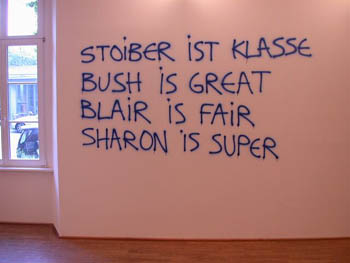 STOiBER iST KLASSE
BUSH iS GREAT
BLAiR iS FAiR
SHARON iS SUPER